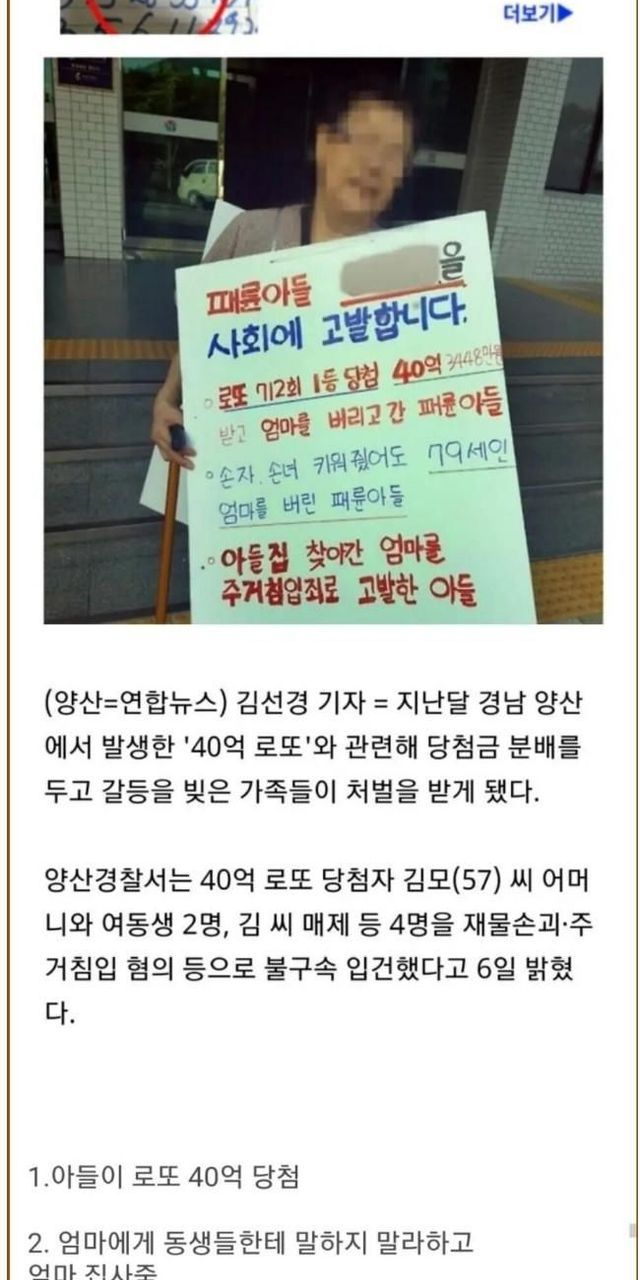 더보기▶
패륜아들 을
사회에 고발합니다.
로또 712회 1등 당첨 40억 3448만원
받고 엄마를 버리고 간 패륜아들
손자. 손녀 키워줬어도 79세인
엄마를 버린 패륜아들
아들집 찾아간 엄마를
주거침입죄로 고발한 아들
(양산=연합뉴스) 김선경 기자 = 지난달 경남 양산
에서 발생한 '40억 로또'와 관련해 당첨금 분배를
두고 갈등을 빚은 가족들이 처벌을 받게 됐다.
양산경찰서는 40억 로또 당첨자 김모(57) 씨 어머
니와 여동생 2명, 김 씨 매제 등 4명을 재물손괴·주
거침입 혐의 등으로 불구속 입건했다고 6일 밝혔
다.
1.아들이 로또 40억 당첨
2. 엄마에게 동생들한테 말하지 말라하고
엄마 집사줌